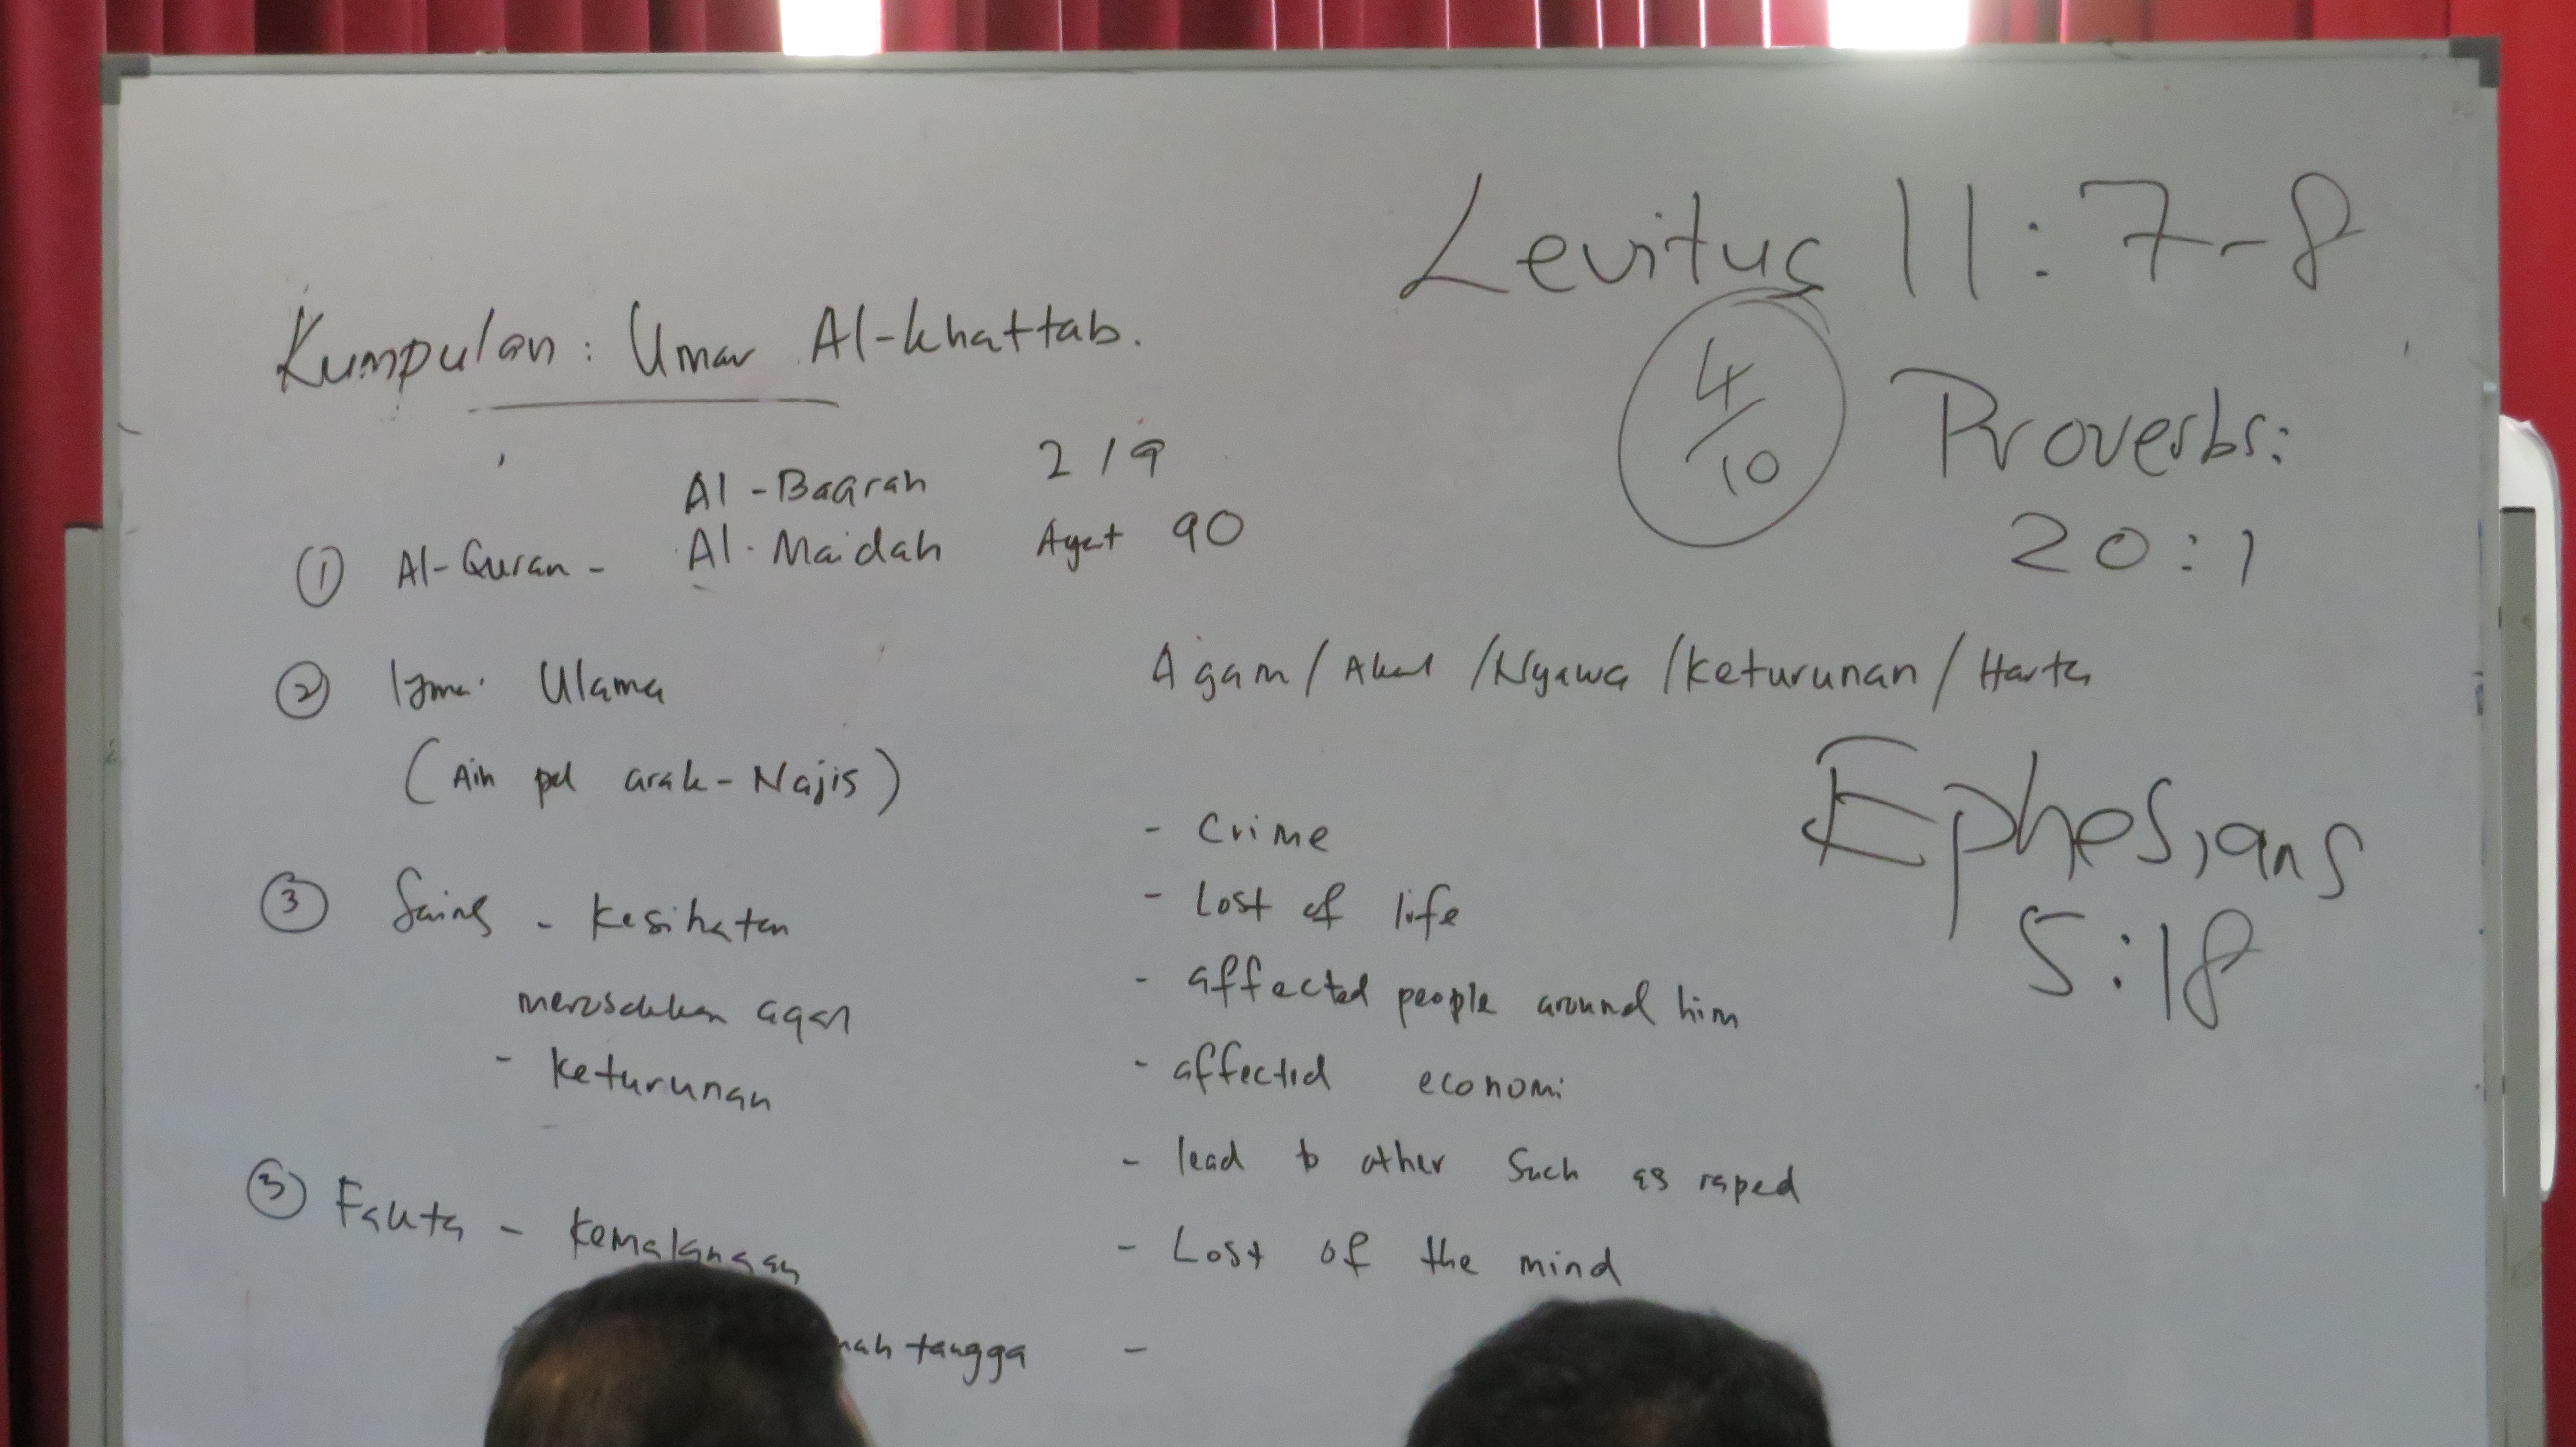 Levitus 11:7-8
4/10
Proverbs:
20:1
Kumpulan: Umar Al-khattab.
Al-Baqrah 219
① Al-Quran - Al-Maidah Ayat 90
② Ulama
(Ain arak - Najis)
③ Sains - kesihatan
merosakkan
- keturunan
③ Fakta - kemalangan
tangga
Agam / Akal / Nyawa / keturunan / Harta
- Crime
- Lost of life
- affected people around him
- affected economi
- lead to other such as raped
- Lost of the mind
-
Ephesians
5:18